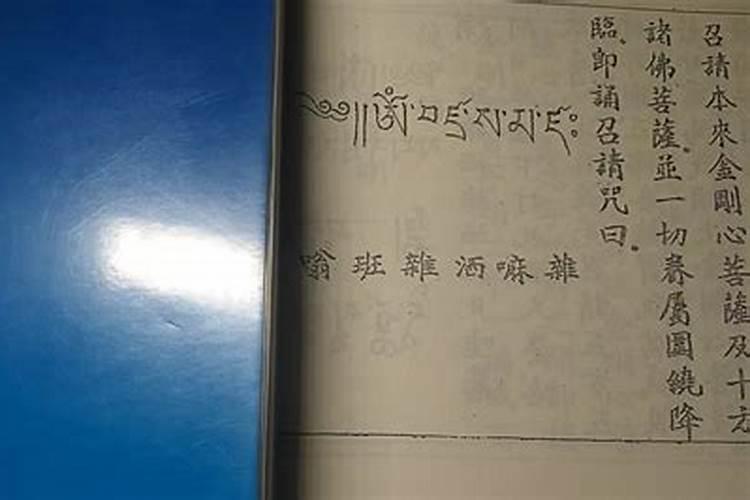 召請本來金剛心菩薩及十方
諸佛菩薩。並一切眷屬圍繞降
臨、卽誦召請咒曰。
༄༅།།ཨོཾ་བཛྲ་ས་མ་ཛཿ
嗡班雜洒嘛雜